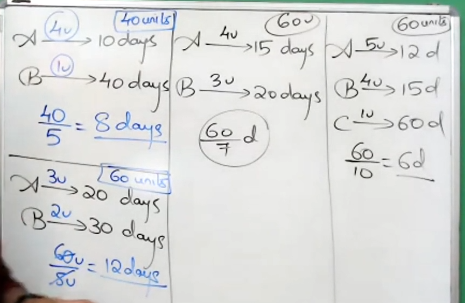 40 units
A 4u→ 10 days
B 1u→ 40 days
40/5 = 8 days
60 units
A 3u→ 20 days
B 2u→ 30 days
60u/5u = 12 days
60u
A 4u→ 15 days
B 3u→ 20 days
60/7 d
60 units
A 5u→ 12 d
B 4u→ 15 d
C 1u→ 60 d
60/10 = 6d